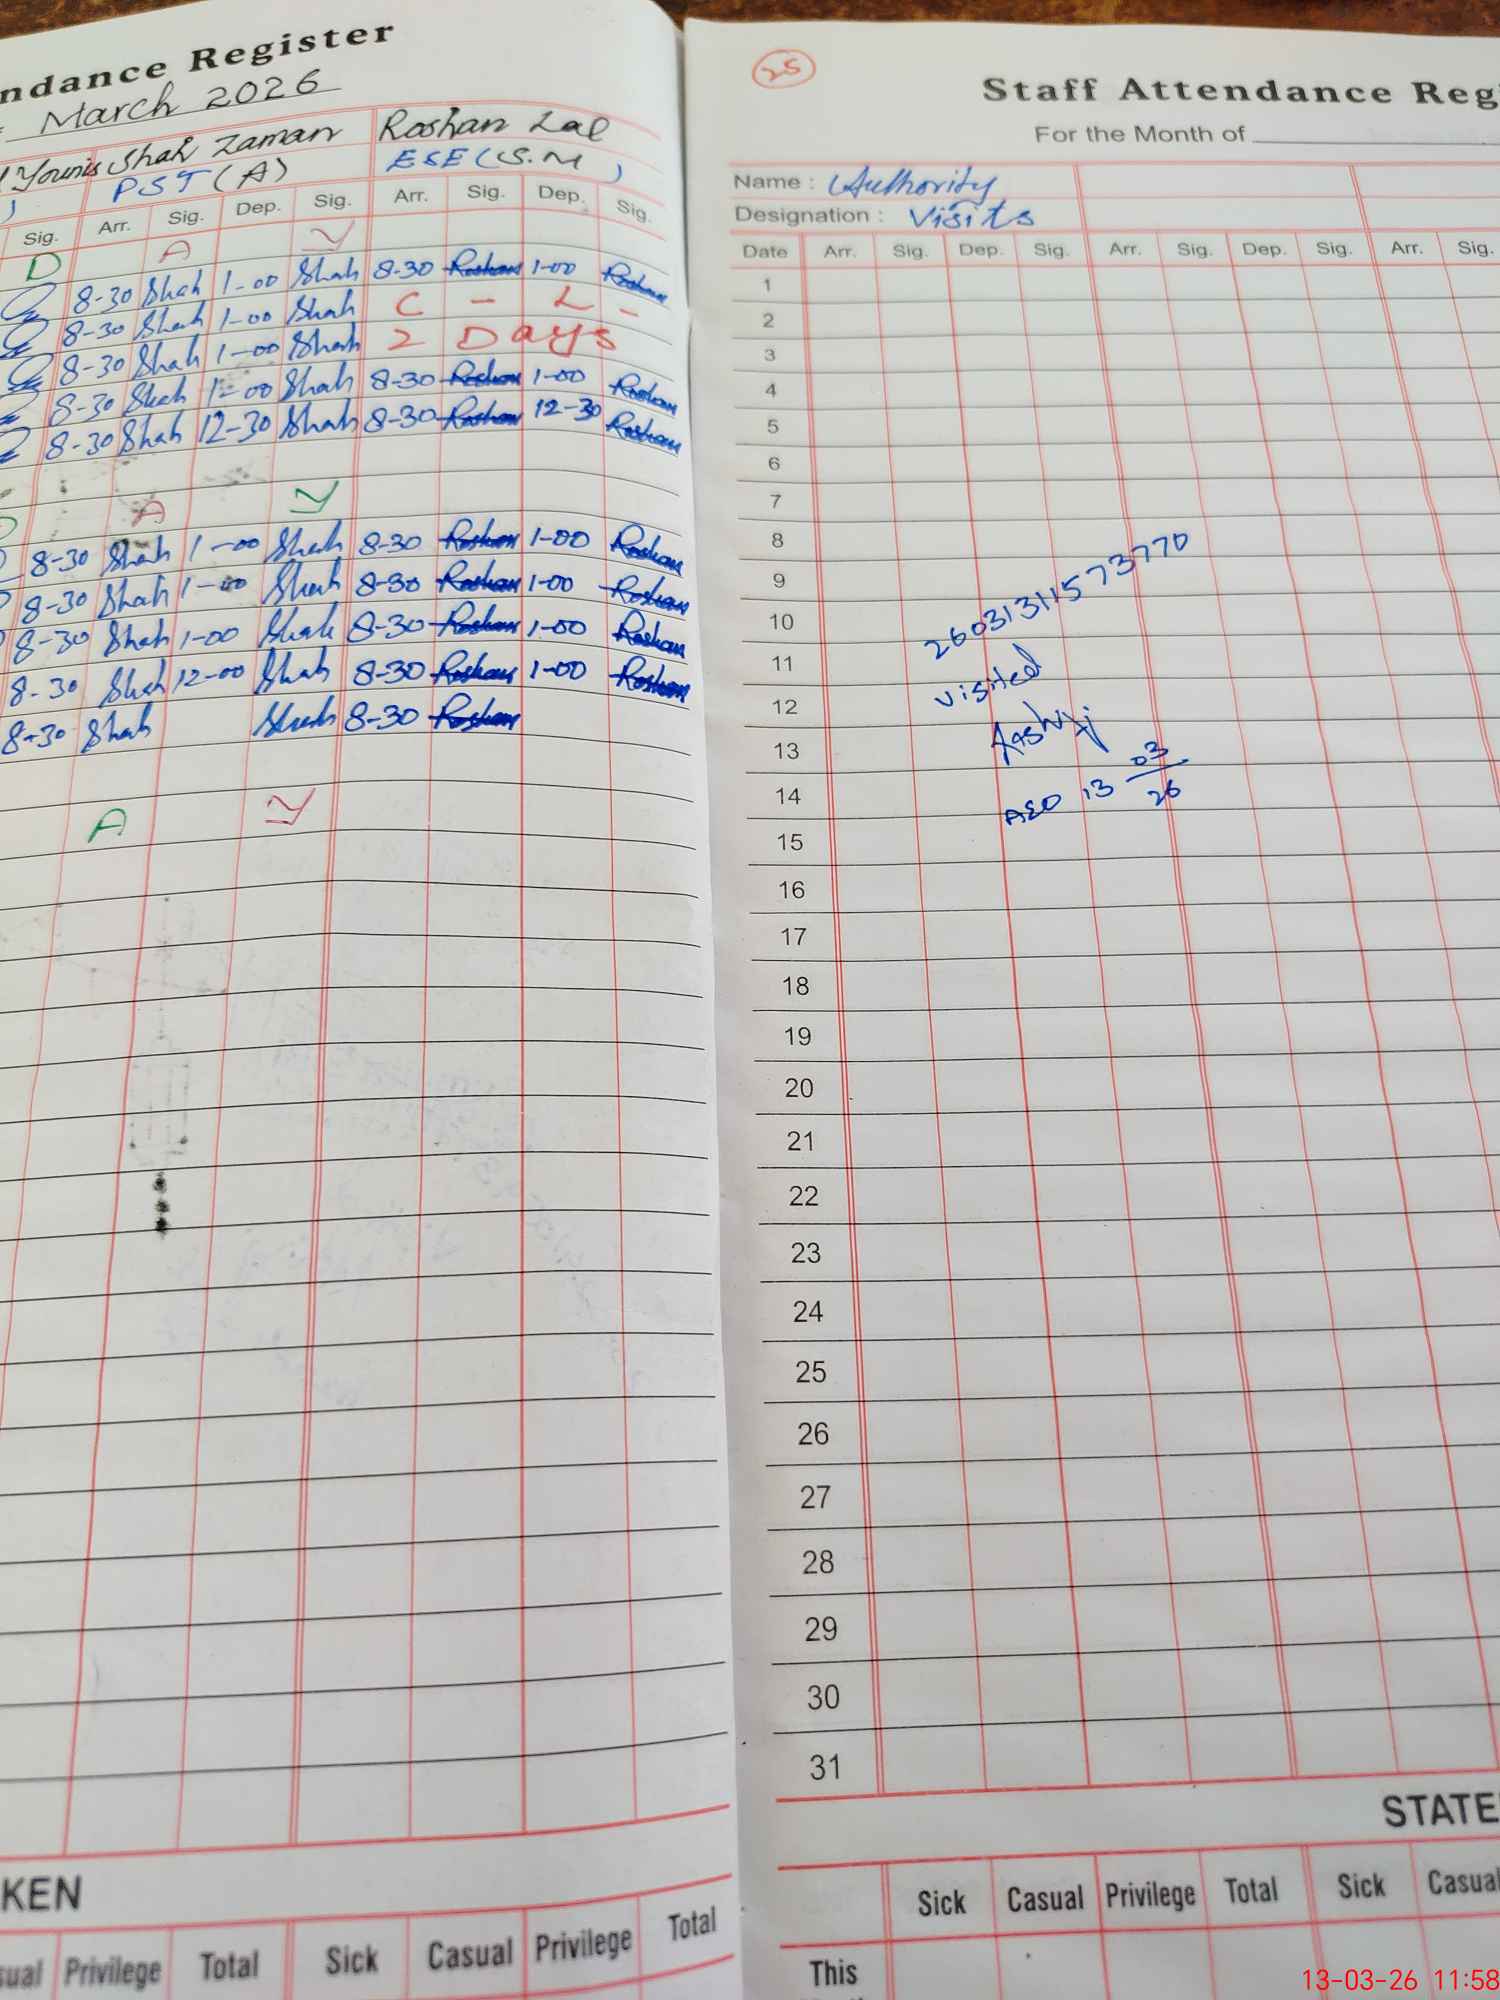 ndance Register
March 2026
Younis Shah Zaman Roshan Lal
PST (A) ESE (S.M)
Sig. Arr. Sig. Dep. Sig. Arr. Sig. Dep. Sig.
D A Y
8-30 Shah 1-00 Shah 8-30 Roshan 1-00 Roshan
8-30 Shah 1-00 Shah C - L -
8-30 Shah 1-00 Shah 2 Days
8-30 Shah 1-00 Shah 8-30 Roshan 1-00 Roshan
8-30 Shah 12-30 Shah 8-30 Roshan 12-30 Roshan
A Y
8-30 Shah 1-00 Shah 8-30 Roshan 1-00 Roshan
8-30 Shah 1-00 Shah 8-30 Roshan 1-00 Roshan
8-30 Shah 1-00 Shah 8-30 Roshan 1-00 Roshan
8-30 Shah 12-00 Shah 8-30 Roshan 1-00 Roshan
8-30 Shah Shah 8-30 Roshan
A Y
KEN
sual Privilege Total Sick Casual Privilege Total
25
Staff Attendance Reg
For the Month of
Name : Authority
Designation : Visits
Date Arr. Sig. Dep. Sig. Arr. Sig. Dep. Sig. Arr. Sig.
1
2
3
4
5
6
7
8
9
10
11
12
13
14
15
16
17
18
19
20
21
22
23
24
25
26
27
28
29
30
31
26031311573770
visited
AEO 13 03/26
STATE
Sick Casual Privilege Total Sick Casual
This
13-03-26 11:58